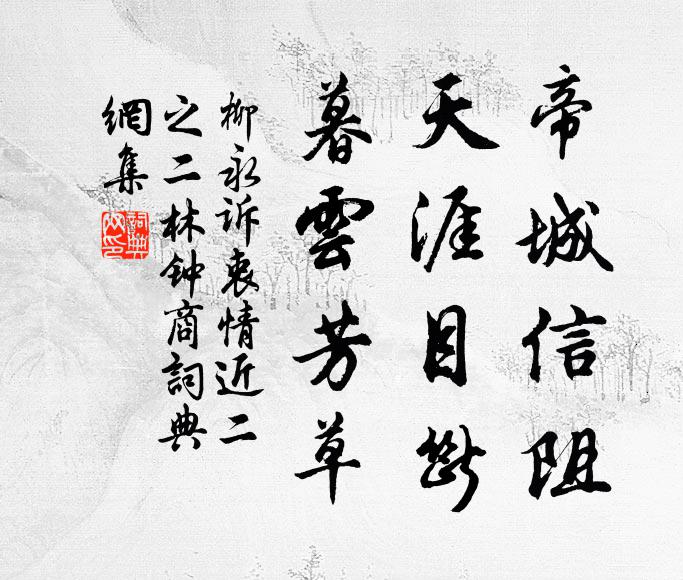 帝城信阻
天涯目斷
暮雲芳草
柳永诉衷情近二
之二林钟商詞典
網集
詞典網印